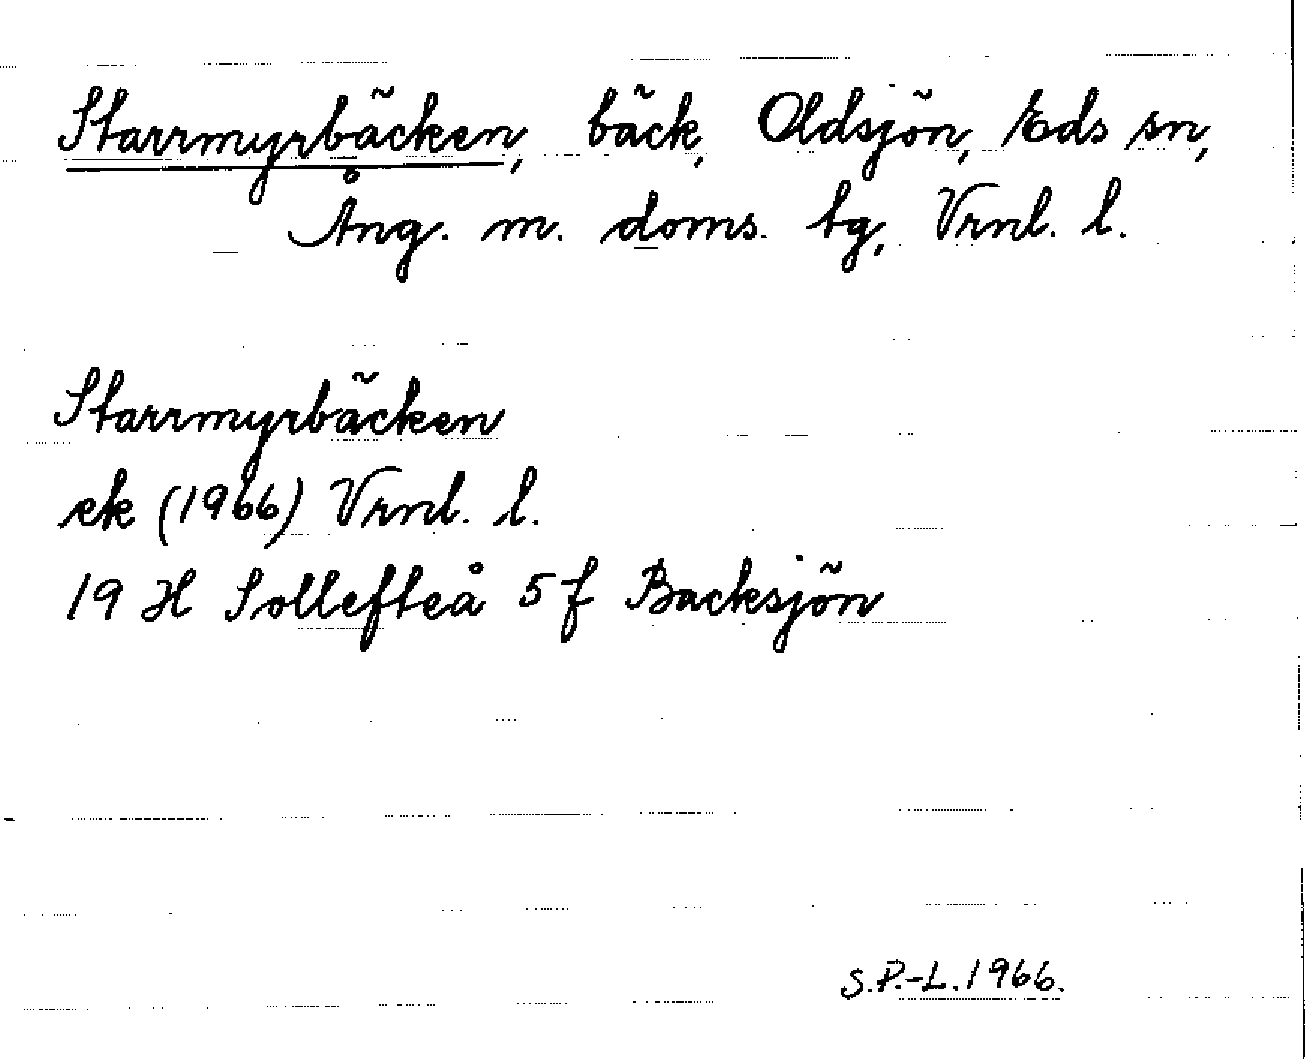 Starrmyrbäcken, bäck, Oldsjön, Eds sn,
Ång. m. doms. tg, Vrnl. l.
Starrmyrbäcken
ek (1966) Vrnl. l.
19 H Sollefteå 5 f Backsjön
S.P.-L. 1966.